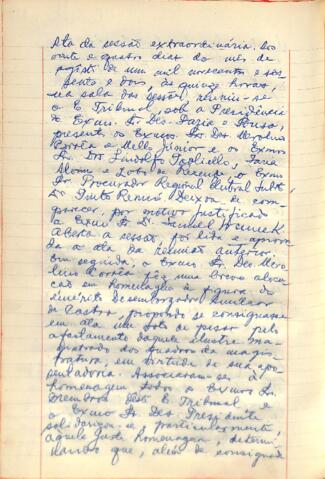 Ata da sessão extraordinária. Aos
vinte e quatro dias do mês de
agôsto de um mil novecentos e ses-
senta e dois, às quinze horas,
na sala das sessões, reuniu-se
o E. Tribunal, sob a Presidência
do Exmo. Sr. Des.
presentes os Exmos. Srs. Des.
Corrêa e Mello Júnior e os Exmos
Srs. Drs. Lindolfo
e o Exmo
Sr. Procurador Regional Eleitoral Subst.
Dr. Deixou de com-
parecer, por motivo justificado
o Exmo Sr. Dr.
Aberta a sessão, foi lida e aprova-
da a ata da reunião anterior.
Em seguida, o Exmo. Sr. Des.
Corrêa fêz uma breve alocu-
ção em homenagem à figura do
emérito Desembargador
de Castro, propondo se consignasse
em ata um voto de pesar pelo
afastamento daquele ilustre ma-
gistrado dos quadros da magis-
tratura, em virtude de sua apo-
sentadoria. Associaram-se à
homenagem todos os Exmos Srs.
Membros dêste E. Tribunal e
o Exmo Sr. Des. Presidente
solidarizou-se, particularmente,
àquela justa homenagem, determi-
nando que, além de consignado